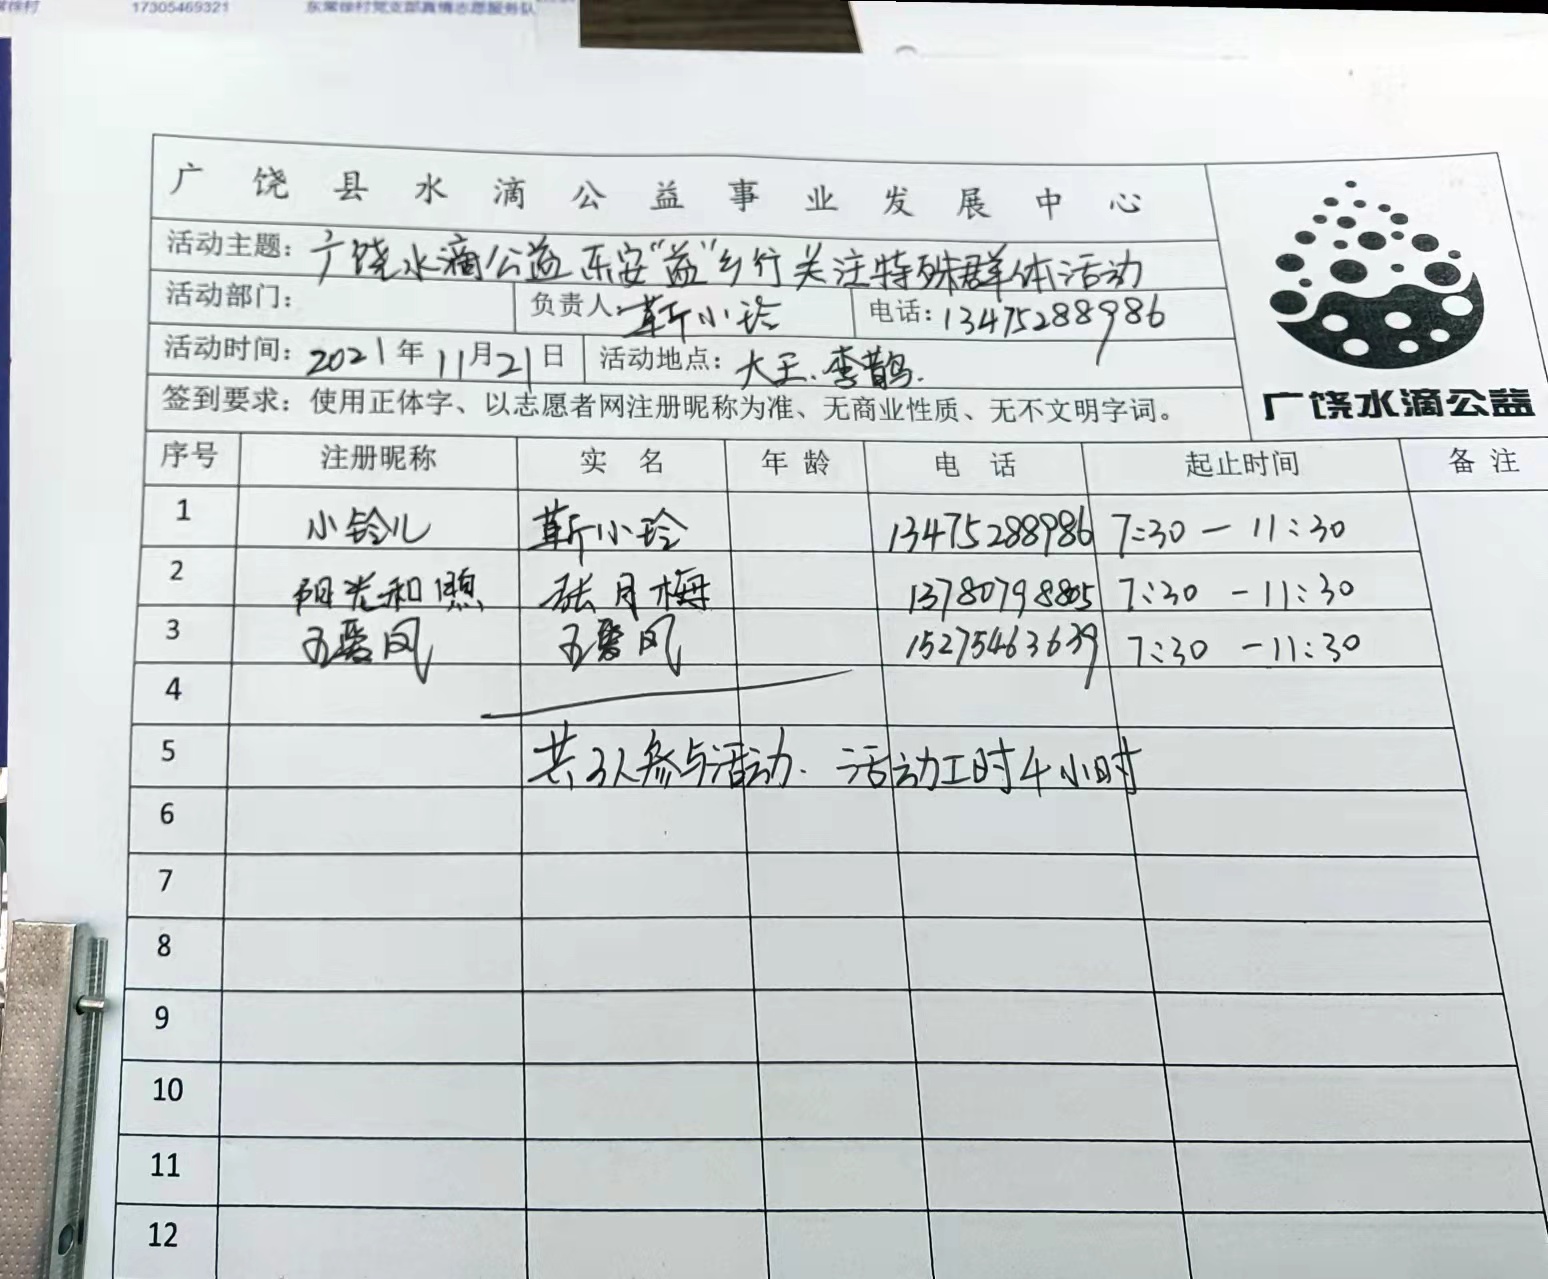 17305469321 东常徐村党支部真情志愿服务队
广饶县水滴公益事业发展中心
活动主题：广饶水滴公益东安“益”乡行关注特殊群体活动
活动部门： 负责人：靳小玲 电话：13475288986
活动时间：2021年11月21日 活动地点：大王、李鹊.
签到要求：使用正体字、以志愿者网注册昵称为准、无商业性质、无不文明字词。
广饶水滴公益
序号 注册昵称 实名 年龄 电话 起止时间 备注
1 小铃儿 靳小玲 13475288986 7:30－11:30
2 阳光和煦 张月梅 13780798805 7:30－11:30
3 王爱凤 王爱凤 15275463639 7:30－11:30
4
5 共3人参与活动. 活动工时4小时
6
7
8
9
10
11
12